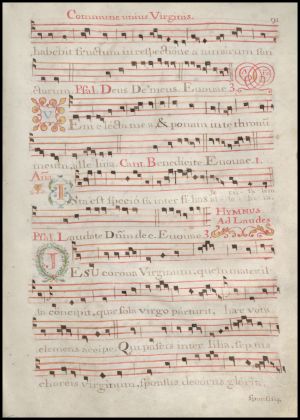 Commune unius Virginis. 91
habebit fructum in respectione animarum san
ctarum. Psal. Deus De⁹ meus. Euouae. 3.
VEni electa mea, & ponam in te thronū
meum, alleluia. Cant. Benedicite. Euouae. 1.
Ana
ISta est speciosa inter filias
Psal. Laudate Dn̄m de c. Euouae. 3. HYMNUS Ad Laudes
JESU corona Virginum, quem mater il
la concipit, quæ sola virgo parturit, hæc vota
clemens accipe. Qui pascis inter lilia, septus
choreis virginum, sponsus decorus gloria,
sponsisq.